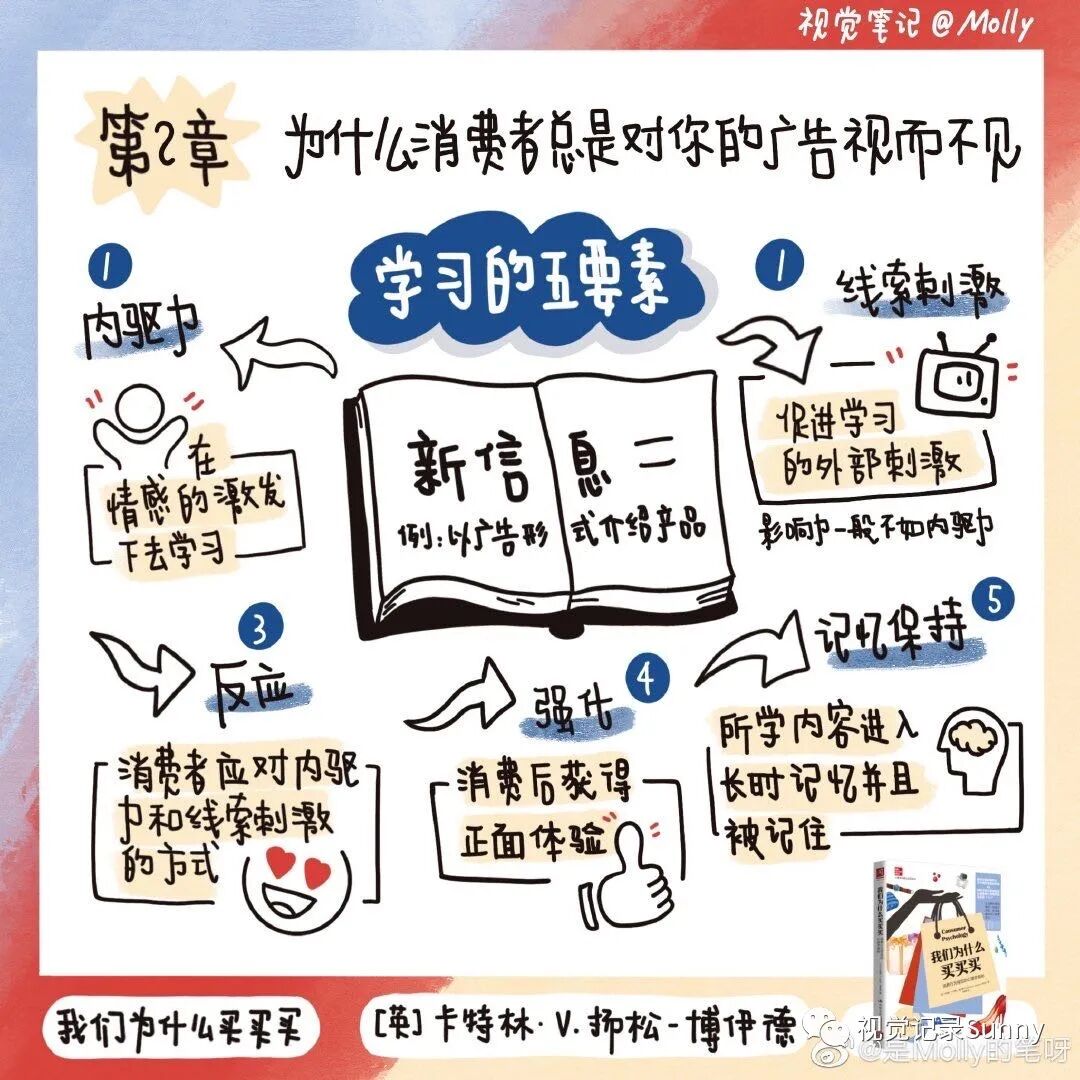 视觉笔记@Molly
第2章
为什么消费者总是对你的广告视而不见
学习的五要素
1
内驱力
在
情感的激发
下去学习
1
线索刺激
促进学习
的外部刺激
影响力一般不如内驱力
新信息
例:以广告形式介绍产品
3
反应
消费者应对内驱
力和线索刺激
的方式
4
强化
消费后获得
正面体验
5
记忆保持
所学内容进入
长时记忆并且
被记住
Consumer
Psychology
我们为什么
买买买
我们为什么买买买
我们为什么买买买
[英]卡特林·V.扬松-博伊德
视觉记录Sunny
@是Molly的笔呀